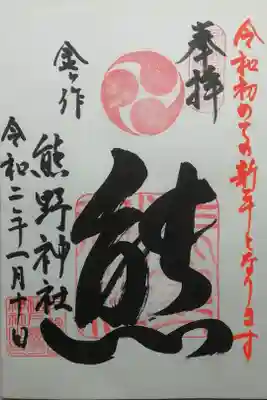 令和初めての新年となります
奉拝
熊
金ヶ作
熊野神社
令和二年一月十日